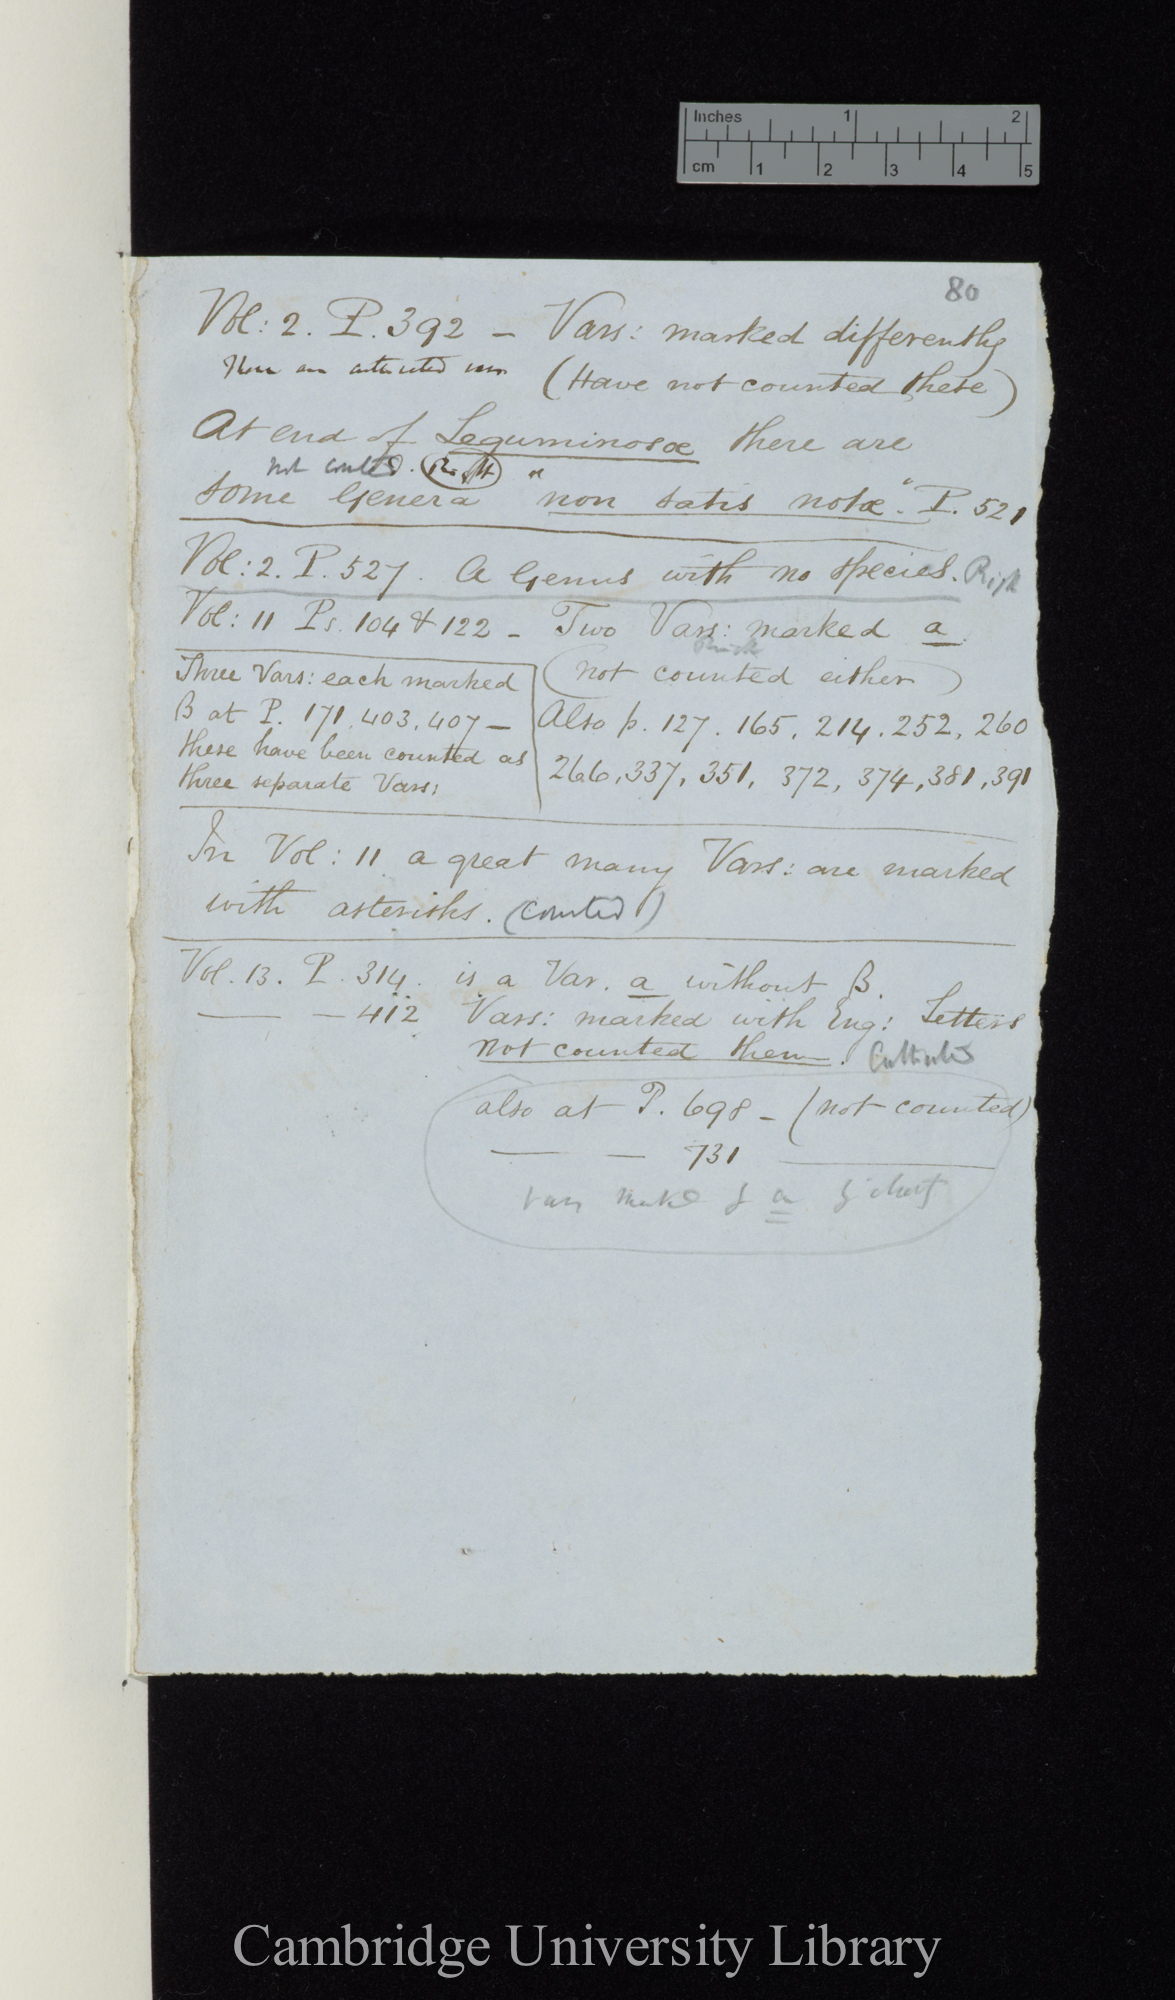 Inches 1 2
cm 1 2 3 4 5
80
Vol: 2. P. 392 – Vars: marked differently
(Have not counted these)
At end of Leguminosæ there are
not counted. Right
some Genera "non satis notæ". P. 521
Vol: 2. P. 527. A Genus with no species. Right
Vol: 11 Ps. 104 & 122 – Two Vars: marked a
(not counted either)
Three Vars: each marked
B at P. 171. 403. 407 –
these have been counted as
three separate Vars:
Also p. 127. 165. 214. 252. 260
266, 337, 351, 372, 374, 381, 391
In Vol: 11 a great many Vars: are marked
with asterisks. (counted)
Vol. 13. P. 314. is a Var. a without B.
— – 412 Vars: marked with Eng: Letters
not counted them.
also at P. 698 – (not counted)
— – 731 —
a
Cambridge University Library